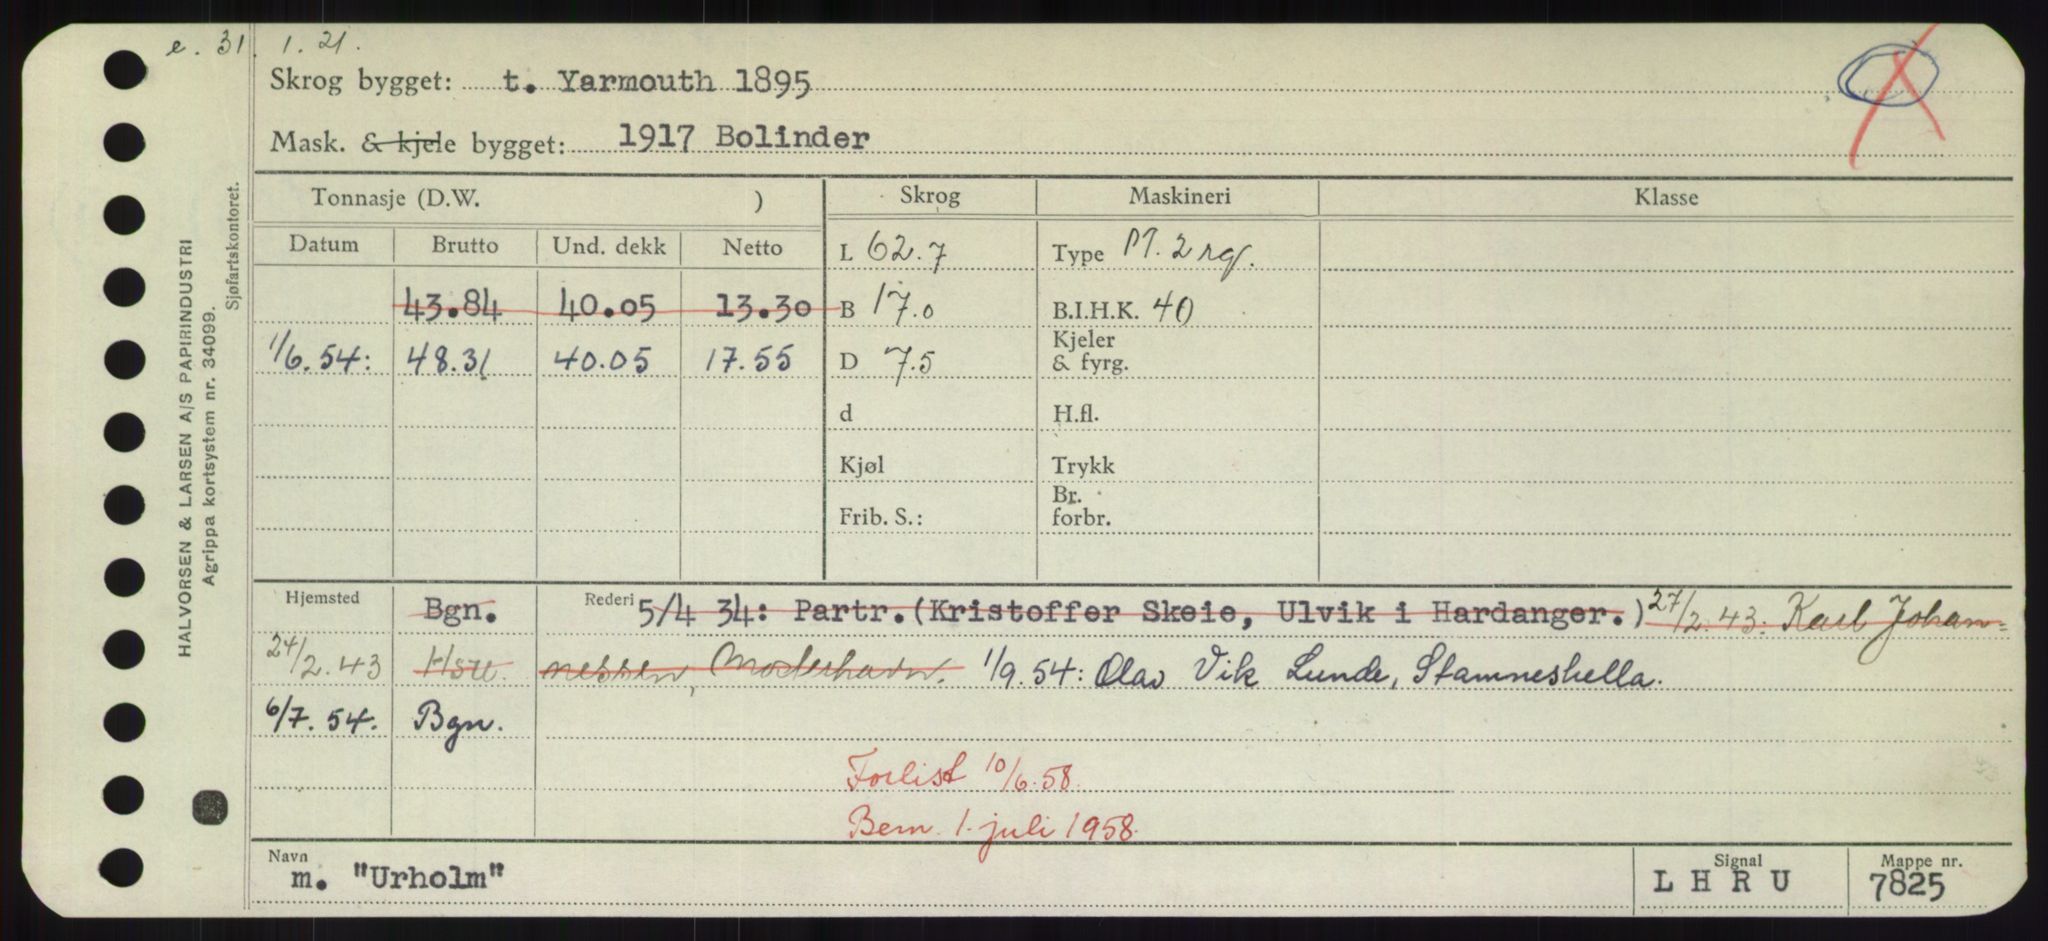 e. 31. 1. 21.
Skrog bygget: t. Yarmouth 1895
Mask. & kjele bygget: 1917 Bolinder
Tonnasje (D.W. ) Skrog Maskineri Klasse
Datum Brutto Und. dekk Netto
L 62.7 Type 2 rg.
43.84 40.05 13.30 B 17.0 B.I.H.K. 40
1/6.54: 48.31 40.05 17.55 D 7.5 Kjeler & fyrg.
d H.fl.
Kjøl Trykk
Frib. S.: Br. forbr.
Hjemsted Bgn. Rederi 5/4 34: Partr.(Kristoffer Skeie, Ulvik i Hardanger.) 27/2.43: Karl Johan=
24/2.43 nessen, 1/9.54: Olav Vik Lunde, Stamneshella.
6/7.54. Bgn.
Forlist 10/6.58.
Bem. 1. juli 1958.
Navn m. "Urholm" Signal L H R U Mappe nr. 7825
HALVORSEN & LARSEN A/S PAPIRINDUSTRI
Agrippa kortsystem nr. 34099.
Sjøfartskontoret.